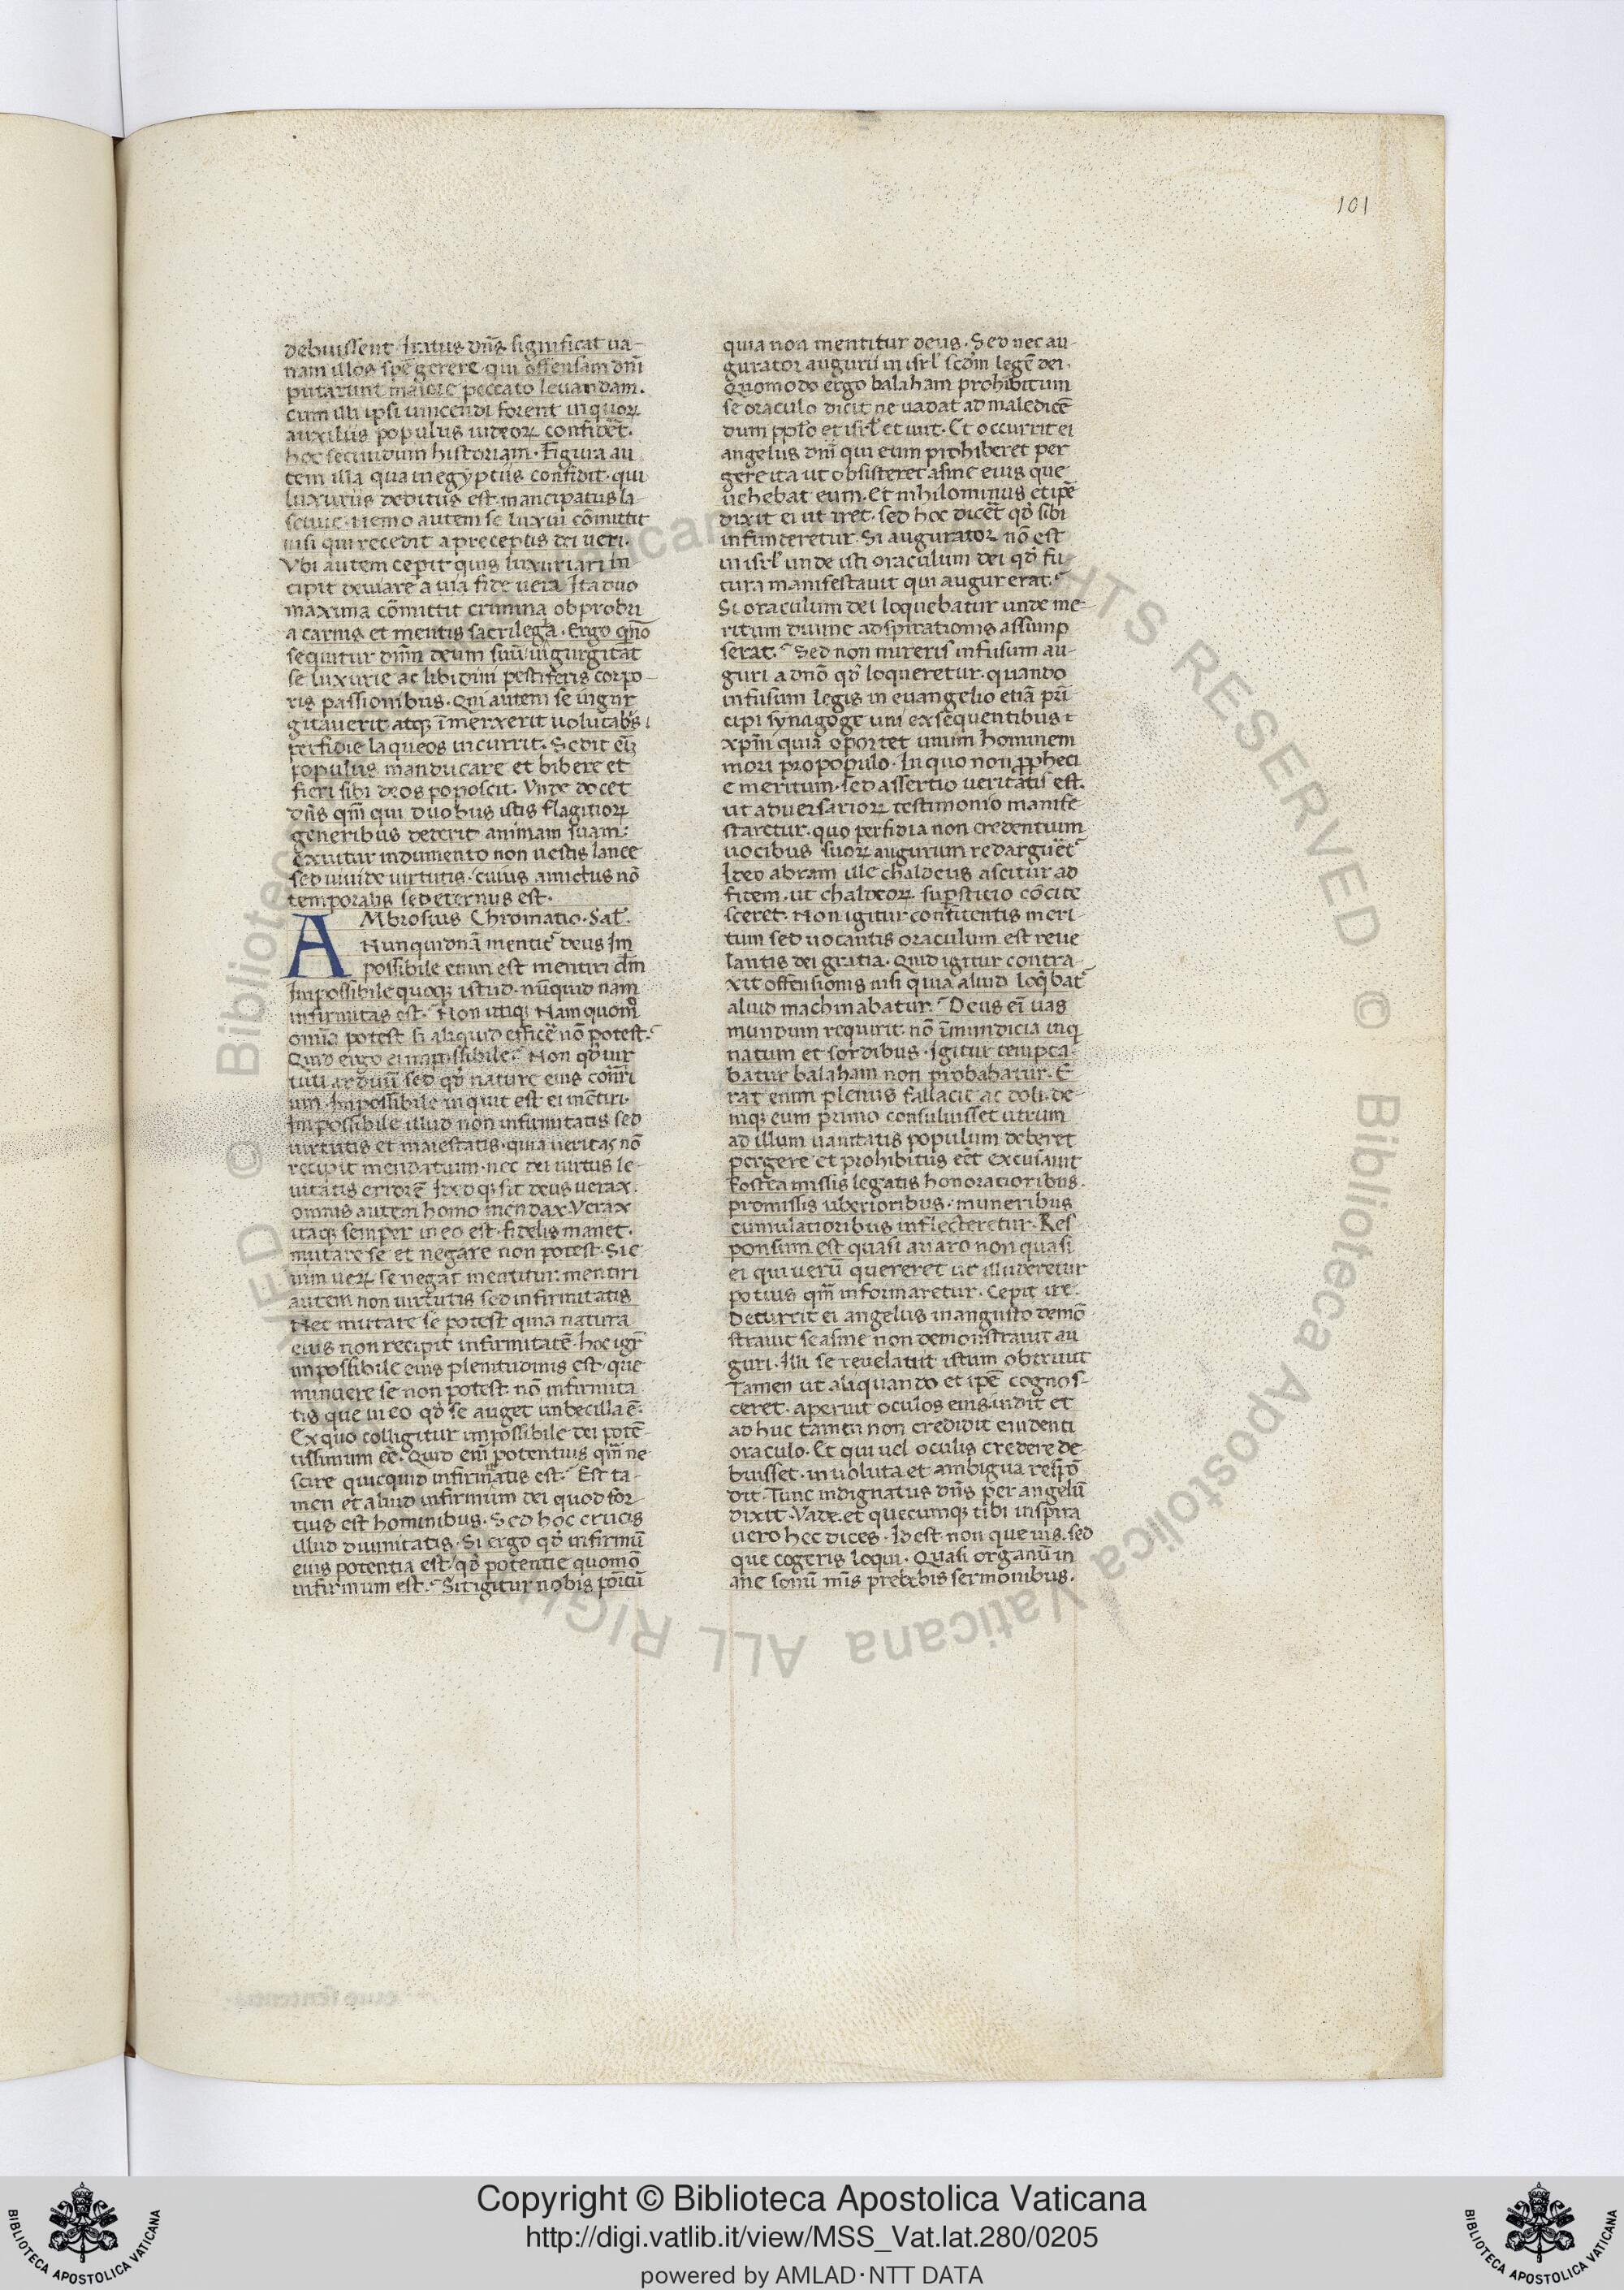 101
debuissent. Iratus dn̄s significat ua-
nam illos spē gerere qui offensam dn̄i
putarunt maiore peccato leuandam.
cum illi ipsi uincendi forent in quoꝝ
auxiliis populus iudeoꝝ confidēt.
hoc secundum historiam. Figura au
tem illa qua in egyptiis confidit. qui
luxuriis deditus est. mancipatus la-
sciuie. Nemo autem se luxui cōmittit
nisi qui recedit a preceptis dei ueri.
Vbi autem cepit quis luxuriari in
cipit deuiare a uia fide uera. Ita duo
maxima cōmittit crimina obprobri
a carnis et mentis sacrilega. Ergo qn̄o
sequitur dn̄m deum suū ingurgitat
se luxurie ac libidini pestiferis corpo-
ris passionibus. Qui autem se ingur
gitauerit atqꝫ īmerxerit uolutabs̄
perfidie laqueos incurrit. Sedit eī
populus manducare et bibere et
fieri sibi deos poposcit. Vnde docet
dn̄s qm̄ qui duobus istis flagitioꝝ
generibus dederit animam suam.
exuitur indumento non uestis lanee
sed uiuide uirtutis. cuius amictus nō
temporalis sed eternus est.
AMbrosius Chromatio. Sal̄.
Nunquidnā mentit̄ deus Im
possibile enim est mentiri dm̄
Impossibile quoqꝫ istud. nūquid nam
infirmitas est. Non utiqꝫ Nam quom̊
omīa potest si aliquid efficē nō potest.
Quid ergo ei impossibile. Non qd̄ uir
tuti arduū sed qd̄ nature eius cont̄ri
um. Impossibile inquit est ei mētiri.
Impossibile illud non infirmitatis sed
uirtutis et maiestatis. quia ueritas nō
recipit mendatium. nec dei uirtus le-
uitatis errorē Ideo qꝫ sit deus uerax.
omnis autem homo mendax. Verax
itaqꝫ semper in eo est. fidelis manet.
mutare se et negare non potest. Si e
nim ueꝝ se negat mentitur: mentiri
autem non uirtutis sed infirmitatis
Nec mutare se potest quia natura
eius non recipit infirmitatē. hoc igr̄
impossibile eius plenitudinis est. que
minuere se non potest nō infirmita
tis que in eo qd̄ se auget imbecilla ē.
Ex quo colligitur impossibile dei potē-
tissimum eē. Quid enī potentius qm̄ ne
scire quicquid infirm̄atis est. Est ta-
men et aliud infirmum dei quod for-
tius est hominibus. Sed hoc crucis
illud diuinitatis. Si ergo qd̄ infirmū
eius potentia est. qd̄ potentie quomō
infirmum est. Sit igitur nobis
quia non mentitur deus. Sed nec au-
gurator augurii in isrl̄ scd̄m legē dei.
Quomodo ergo balaham prohibitum
se oraculo dicit ne uadat ad maledicē
dum ppl̄o et isrl̄ et iuit. Et occurrit ei
angelus dn̄i qui eum prohiberet per
gere ita ut obsisteret asine eius que
uehebat eum. Et nihilominus et ipē
dixit ei ut iret. sed hoc dicēt qd̄ sibi
infunderetur. Si augurator nō est
in isrl̄ unde isti oraculum dei qd̄ fu
tura manifestauit qui augur erat.
Si oraculum dei loquebatur unde me-
ritum diuine adspirationis assump
serat. Sed non mireris infusum au-
guri a dn̄o qd̄ loqueretur. quando
infusum legis in euangelio etiā prī
cipi synagoge uni exsequentibus
xpm̄ quia oportet unum hominem
mori pro populo. In quo non ꝓpheci
e meritum. sed assertio ueritatis est.
ut aduersarioꝝ testimonio manife
staretur. quo perfidia non credentium
uocibus suoꝝ augurum redarguēt̄
Ideo abram ille chaldeus ascitur ad
fidem. ut chaldeoꝝ supsticio cōcite
sceret. Non igitur confitentis meri-
tum sed uocantis oraculum est reue
lantis dei gratia. Quid igitur contra-
xit offensionis nisi quia aliud loqbat̄
aliud machinabatur. Deus eī uas
mundum requirit. nō īmundicia inq
natum et sordibus. Igitur tempta-
batur balaham non probabatur. E
rat enim plenus fallacie ac doli. de-
niqꝫ cum primo consuluisset utrum
ad illum uanitatis populum deberet
pergere et prohibitus eēt excusauit
Postea missis legatis honoratioribus.
promissis uberioribus. muneribus
cumulatioribus inflecteretur. Res
ponsum est quasi auaro non quasi
ei qui uerū quereret ut illuderetur
potius qm̄ informaretur. Cepit ire.
Occurrit ei angelus in angusto demō-
strauit se asine non demonstrauit au
guri. Illi se reuelauit istum obtriuit
Tamen ut aliquando et ipē cognos-
ceret. aperuit oculos eius. uidit et
adhuc tamen non credidit euidenti
oraculo. Et qui uel oculis credere de
buisset. inuoluta et ambigua resp̄ō
dit. Tunc indignatus dn̄s per angelū
dixit. Vade. et quecumqꝫ tibi inspira
uero hec dices. Id est. non que uis. sed
que cogeris loqui. Quasi organū in
ane sonū m̄is prebebis sermonibus.
Copyright © Biblioteca Apostolica Vaticana
http://digi.vatlib.it/view/MSS_Vat.lat.280/0205
powered by AMLAD·NTT DATA
BIBLIOTECA APOSTOLICA VATICANA
BIBLIOTECA APOSTOLICA VATICANA